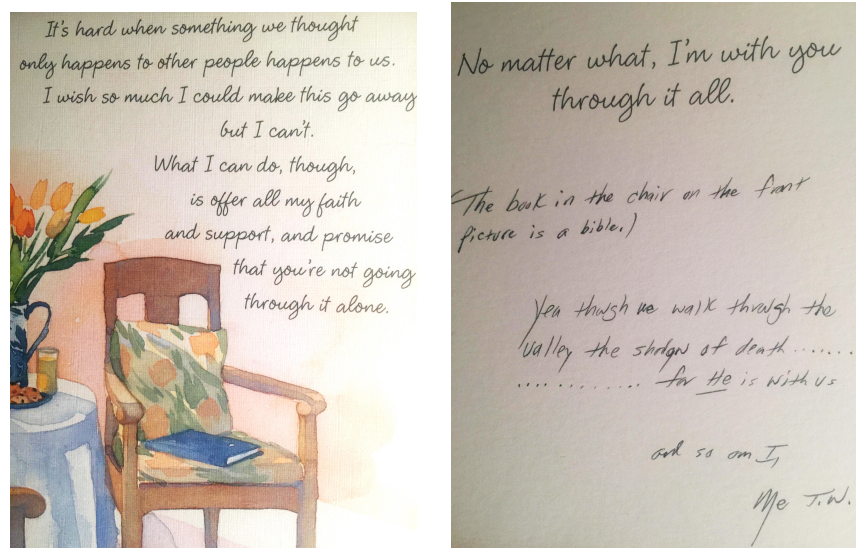 It's hard when something we thought
only happens to other people happens to us.
I wish so much I could make this go away
but I can't.
What I can do, though,
is offer all my faith
and support, and promise
that you're not going
through it alone.
No matter what, I'm with you
through it all.
(The book in the chair on the front
picture is a bible.)
Yea though we walk through the
valley the shadow of death .......
............. for He is with us
and so am I,
Me J.W.